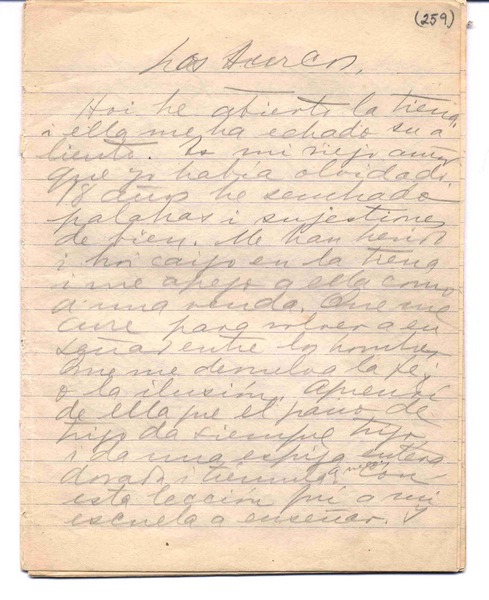 (259)
Los surcos.
Hoi he abierto la tierra
i ella me ha echado su a
liento. Es mi viejo amor
que yo había olvidado.
18 años he sembrado
palabras i sujestiones
de bien. Me han herido
i hoi caigo en la tierra
i me apego a ella como
a una venda. Que me
cure para volver a en
señar entre los hombres
Que me devuelva la fe i
o la ilusión. Aprendí
de ella que el puño de
trigo da siempre trigo
i da una espiga entera
dorada i trémula. Con
esta lección fuí a mi
escuela a enseñar.